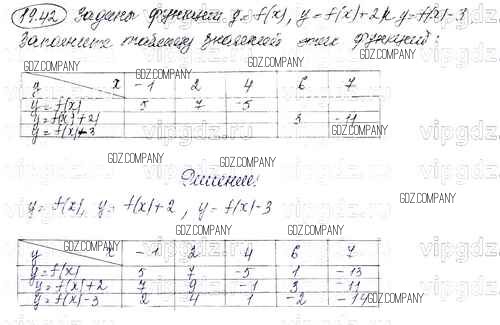 19.42 Заданы функции y = f(x), y = f(x)+2 и y = f(x)-3
Заполните таблицу значений этих функций:
GDZ.COMPANY GDZ.COMPANY GDZ.COMPANY GDZ.COMPANY
y x -1 2 4 6 7
y = f(x) 5 7 -5
y = f(x)+2 3 -11
y = f(x)-3
GDZ.COMPANY GDZ.COMPANY GDZ.COMPANY
vipgdz.ru vipgdz.ru vipgdz.ru
GDZ.COMPANY
Решение:
GDZ.COMPANY
y = f(x), y = f(x)+2, y = f(x)-3
GDZ.COMPANY GDZ.COMPANY GDZ.COMPANY
y x -1 2 4 6 7
y = f(x) 5 7 -5 1 -13
y = f(x)+2 7 9 -1 3 -11
y = f(x)-3 2 4 1 -2
GDZ.COMPANY GDZ.COMPANY GDZ.COMPANY GDZ.COMPANY